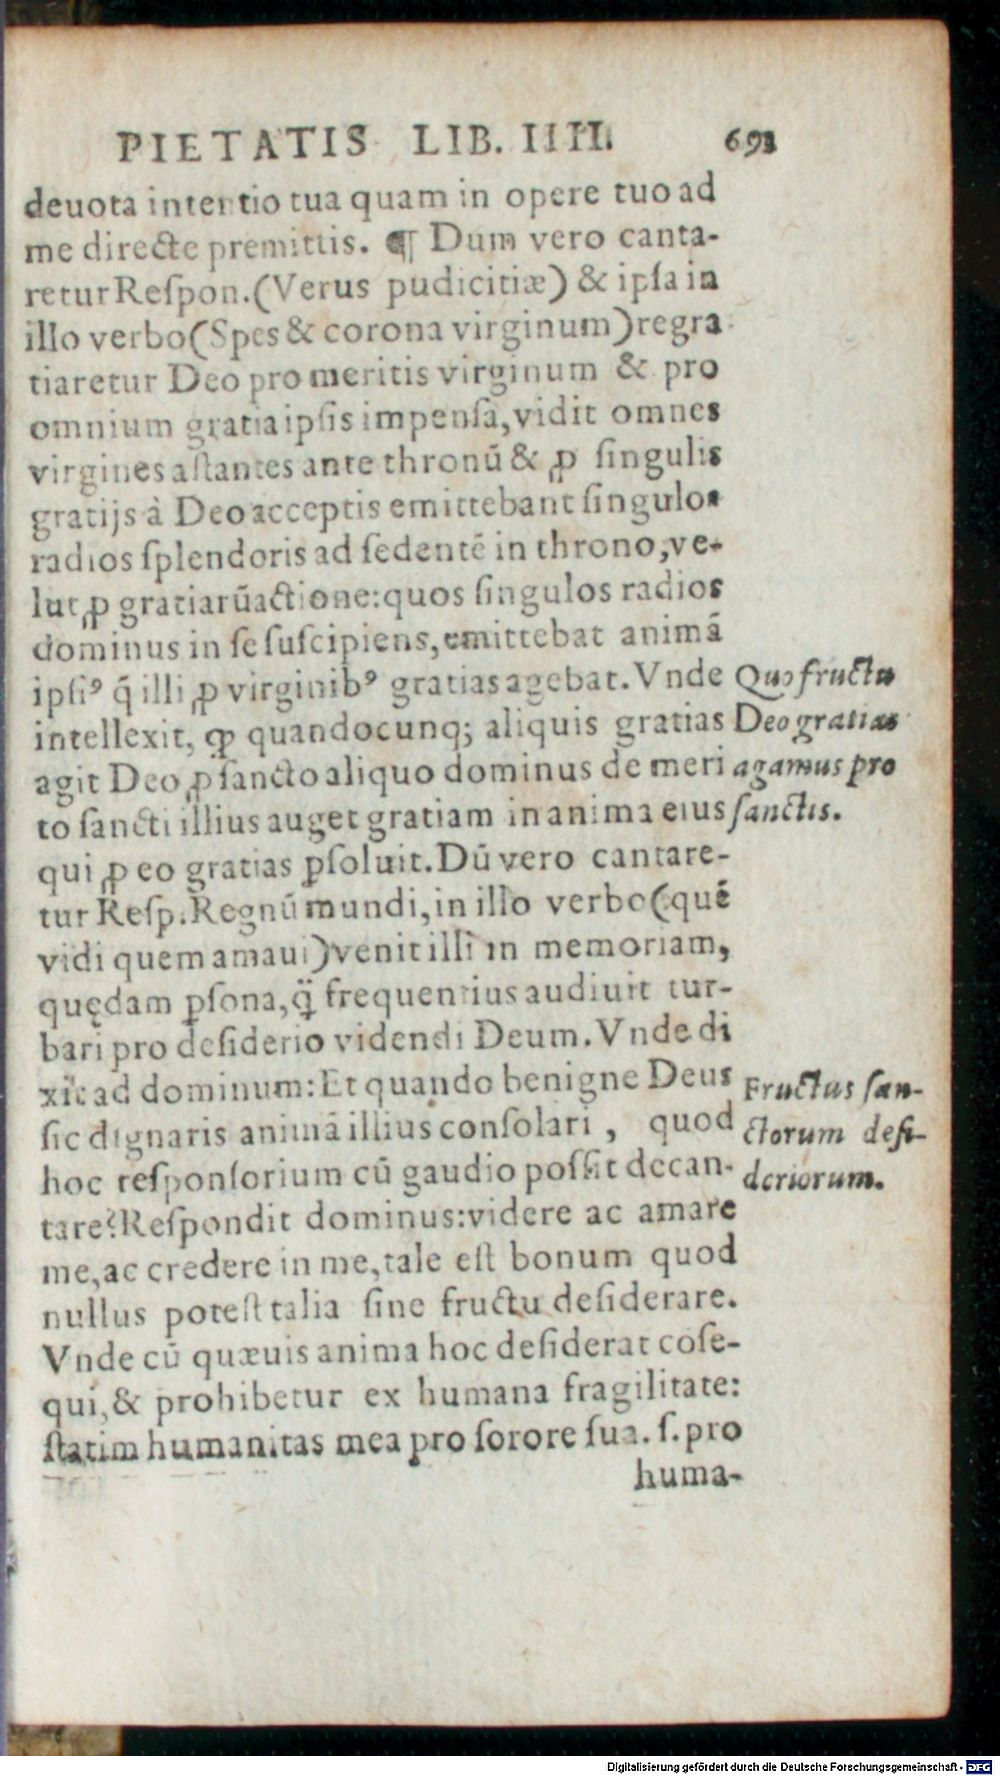 PIETATIS LIB. IIII. 693
deuota intentio tua quam in opere tuo ad
me directe premittis. ¶ Dum vero canta-
retur Reſpon. (Verus pudicitiæ) & ipſa in
illo verbo (Spes & corona virginum) regra
tiaretur Deo pro meritis virginum & pro
omnium gratia ipſis impenſa, vidit omnes
virgines aſtantes ante thronū & ꝓ ſingulis
gratijs à Deo acceptis emittebant ſingulos
radios ſplendoris ad ſedentē in throno, ve-
lut ꝓ gratiarū actione: quos ſingulos radios
dominus in ſe ſuſcipiens, emittebat animā
ipſiꝰ q̄ illi ꝓ virginibꝰ gratias agebat. Vnde
intellexit, ꝙ quandocunq; aliquis gratias
agit Deo ꝓ ſancto aliquo dominus de meri
to ſancti illius auget gratiam in anima eius
qui ꝓ eo gratias ꝑſoluit. Dū vero cantare-
tur Reſp. Regnū mundi, in illo verbo (quē
vidi quem amaui) venit illi in memoriam,
quędam ꝑſona, q̄ frequentius audiuit tur-
bari pro deſiderio videndi Deum. Vnde di
xit ad dominum: Et quando benigne Deus
ſic dignaris animā illius conſolari, quod
hoc reſponſorium cū gaudio poſſit decan-
tare? Reſpondit dominus: videre ac amare
me, ac credere in me, tale eſt bonum quod
nullus poteſt talia ſine fructu deſiderare.
Vnde cū quæuis anima hoc deſiderat coſe-
qui, & prohibetur ex humana fragilitate:
ſtatim humanitas mea pro ſorore ſua. ſ. pro
huma-
Quo fructu
Deo gratias
agamus pro
ſanctis.
Fructus ſan-
ctorum deſi-
deriorum.
Digitalisierung gefördert durch die Deutsche Forschungsgemeinschaft - DFG